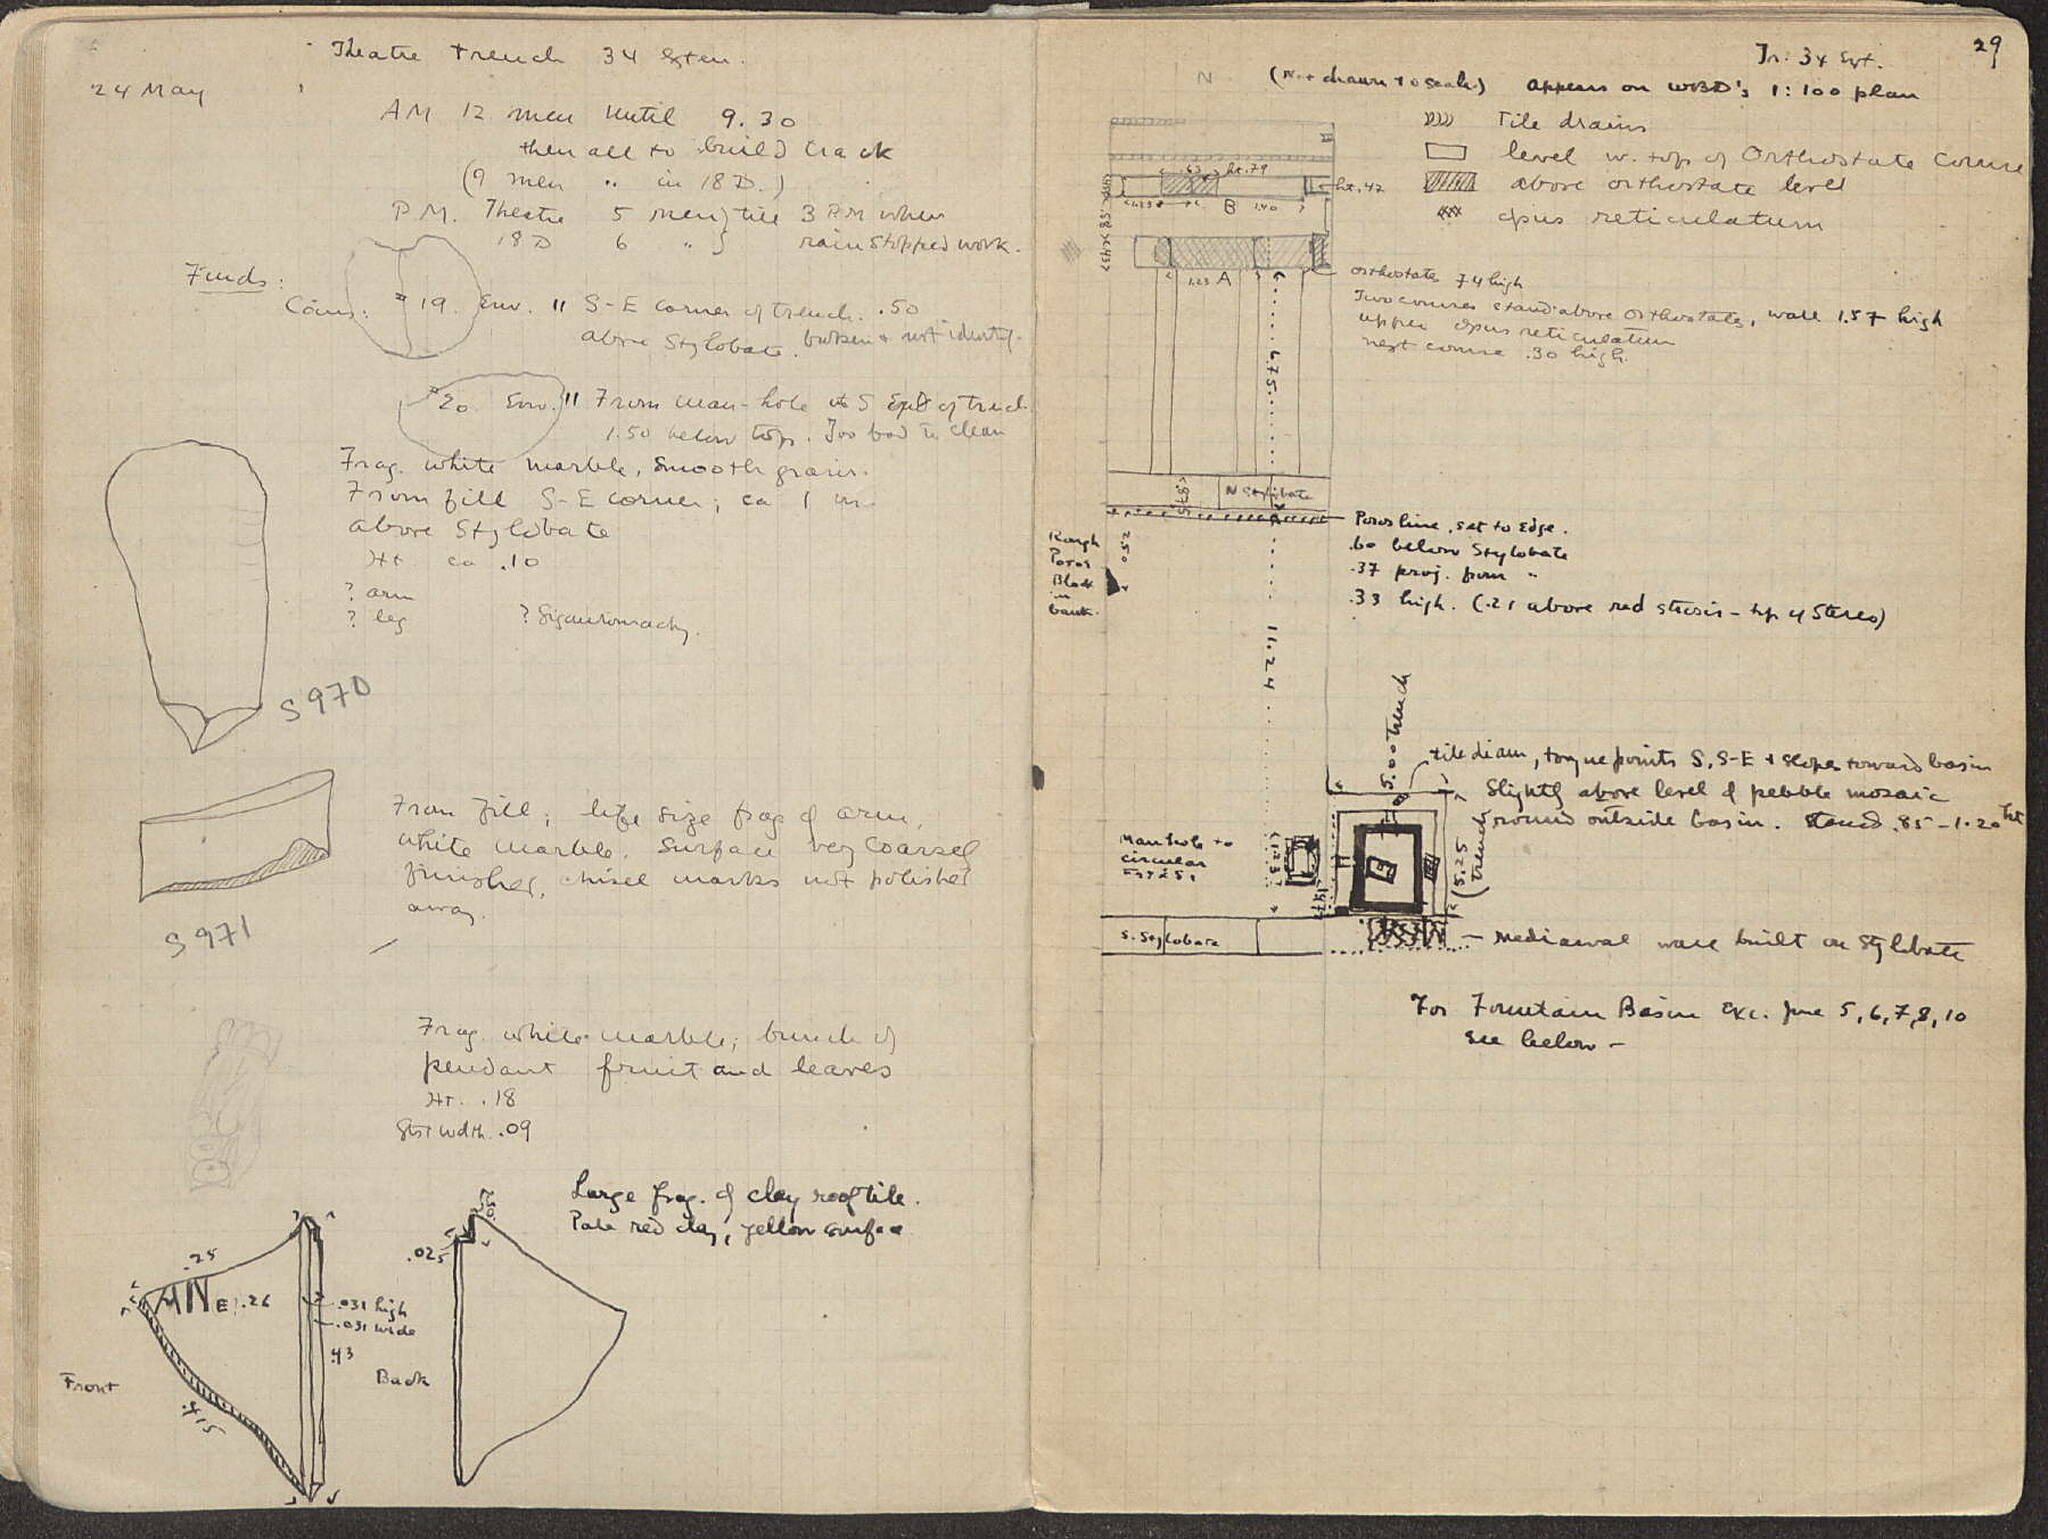 Theatre trench 34 Exten.
24 May
AM 12 men until 9.30
then all to build track
(9 men " in 18 D.)
P.M. Theatre 5 men } till 3 P.M when
18 D 6 " } rain stopped work.
Finds:
Coins: #19. Env. 11 S-E corner of trench. .50
above Stylobate. broken & not identif.
#20 Env. 11 From man-hole at S End of trench
1.50 below top. Too bad to clean
Frag. white marble, smooth grain.
From fill S-E corner; ca 1 m.
above Stylobate
Ht ca .10
? arm
? leg ? Gigantomachy.
S 970
From fill; life size frag of arm,
white marble. Surface very coarsely
finished, chisel marks not polished
away.
S 971
Frag. white marble; bunch of
pendant fruit and leaves
Ht. .18
Gst wdth. .09
Large frag. of clay roof tile.
Pale red clay, yellow surface
.025
.25
ANE .26
.031 high
.031 wide
.43
Front
Back
.415
29
Tr. 34 Ext.
N (Not drawn to scale) appears on WBD's 1:100 plan
Tile drains
level w. top of Orthostate Course
above orthostate level
opus reticulatum
.63 ht .79
ht. .42
B 1.40
1.23 A
orthostate 74 high
Two courses stand above orthostate, wall 1.57 high
upper opus reticulatum
next course .30 high.
6.75
N Stylobate
Poros line, set to edge.
.60 below Stylobate
.37 proj. from "
.33 high. (.21 above red stosis - top of Stereo)
Rough
Poros
Block
in
bank.
2.50
11.24
5.00 trench
tile diam, tongue points S, S-E & slopes toward basin
Slightly above level of pebble mosaic
round outside basin. Stands .85 - 1.20 ht
Manhole to
circular
5.25
trench
S. Stylobate
Mediaeval wall built on Stylobate
For Fountain Basin Exc. June 5, 6, 7, 8, 10
see below -